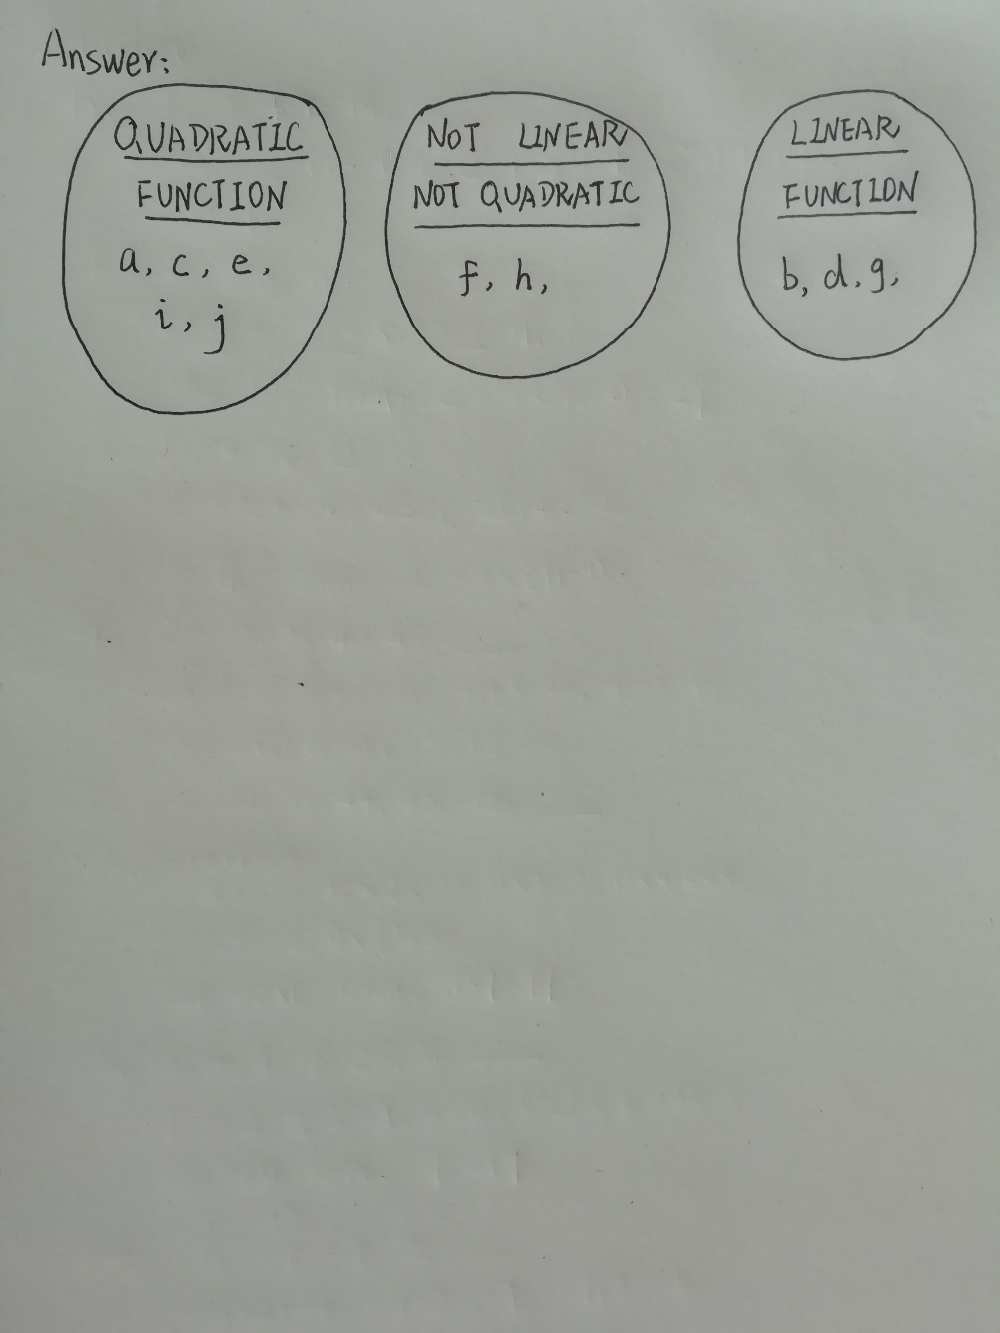 Answer:
QUADRATIC
FUNCTION
a, c, e,
i, j
NOT LINEAR
NOT QUADRATIC
f, h,
LINEAR
FUNCTION
b, d, g,